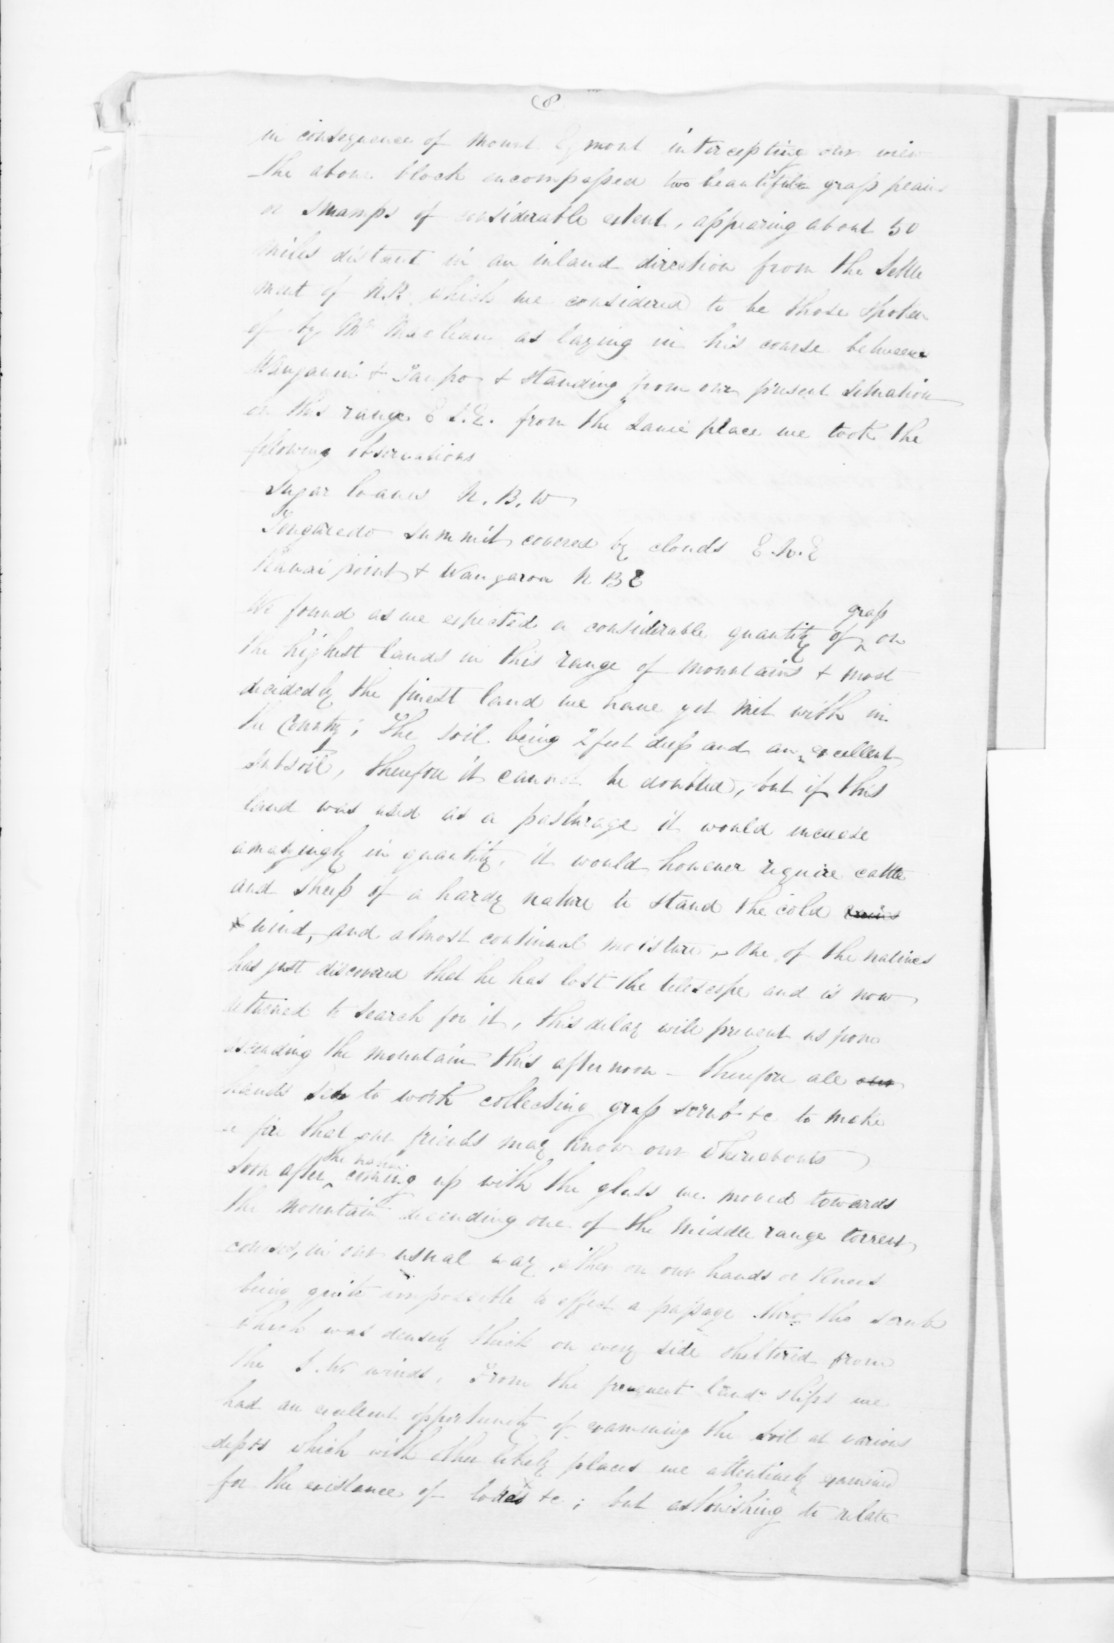 8
in consequence of Mount Egmont intercepting our view
The above block encompassed two beautiful grass plains
or swamps of considerable extent, appearing about 50
miles distant in an inland direction from the Settle
ment of N.P. which we considered to be those spoken
of by Mr Maclean as laying in his course between
Wanganui & Taupo & standing from our present situation
on this range E S.E. from the same place we took the
folowing observations
Sugar loaves N. B. W
Tongaredo summit covered by clouds E.N.E
point & Wangaroa N B E
We found as we expected a considerable quantity of grass on
the highest lands in this range of mountains & most
decidedly the finest land we have yet met with in
the County; The soil being 2 feet deep and an excellent
subsoil, therefore it cannot be doubted, but if this
land was used as a pasturage it would increase
amazingly in quantity. it would however require cattle
and sheep of a hardy nature to stand the cold rains
& wind, and almost continual moisture, One of the natives
has just discovered that he has lost the telescope and is now
returned to search for it, this delay will prevent us from
ascending the mountain this afternoon - Therefore all our
hands set to work collecting grass scrub &c to make
a fire that our friends may know our whereabouts
Soon after the native coming up with the glass we moved towards
the mountain decending one of the middle range torrent
courses, in our usual way, either on our hands or knees
being quite impossible to effect a passage thro the scrub
which was densely thick on every side sheltered from
the S.W winds. From the frequent land slips we
had an excelent opportunity of examining the soil at various
depts which with other likely places we attentively examined
for the existance of &c ; but astonishing to relate